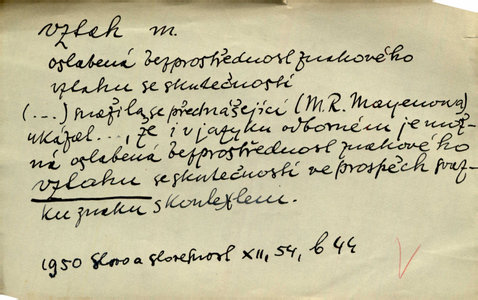 vztah m.
oslabená bezprostřednost znakového
vztahu se skutečností
(...) snažila se přednášející (M. R. Mayenowa)
ukázat..., že i v jazyku odborném je mož-
ná oslabená bezprostřednost znakového
vztahu se skutečností ve prospěch svaz-
ku znaku s kontextem.
1950 Slovo a slovesnost XII, 54, b 44